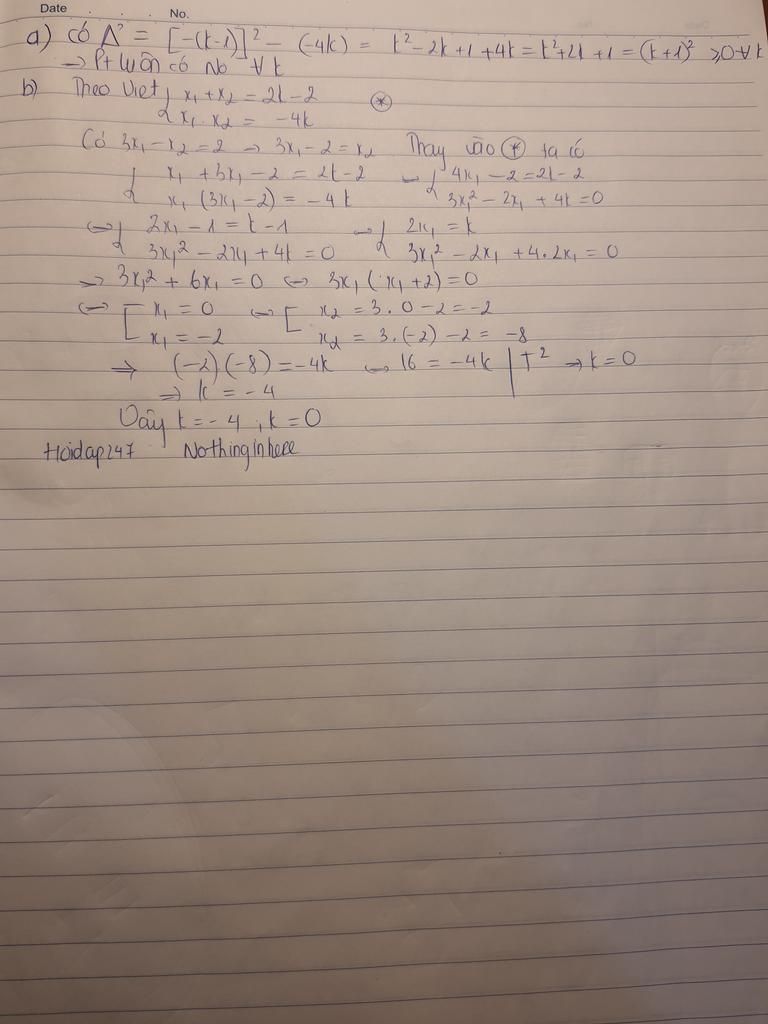 Date No.
a) Có Δ' = [-(k-1)]² - (-4k) = k² - 2k + 1 + 4k = k² + 2k + 1 = (k+1)² ≥ 0 ∀ k
→ Pt luôn có No ∀ k
b) Theo Viet { x₁ + x₂ = 2k - 2 ⊛
{ x₁ . x₂ = -4k
Có 3x₁ - x₂ = 2 → 3x₁ - 2 = x₂ Thay vào ⊛ ta có
{ x₁ + 3x₁ - 2 = 2k - 2 ↔ { 4x₁ - 2 = 2k - 2
{ x₁ (3x₁ - 2) = -4k { 3x₁² - 2x₁ + 4k = 0
↔ { 2x₁ - 1 = k - 1 ↔ { 2x₁ = k
{ 3x₁² - 2x₁ + 4k = 0 { 3x₁² - 2x₁ + 4.2x₁ = 0
→ 3x₁² + 6x₁ = 0 ↔ 3x₁ (x₁ + 2) = 0
↔ [ x₁ = 0 ↔ [ x₂ = 3.0 - 2 = -2
[ x₁ = -2 [ x₂ = 3.(-2) - 2 = -8
⇒ (-2)(-8) = -4k ↔ 16 = -4k | T² → k = 0
⇒ k = -4
Vậy k = -4, k = 0
Hoidap247 Nothinginhere